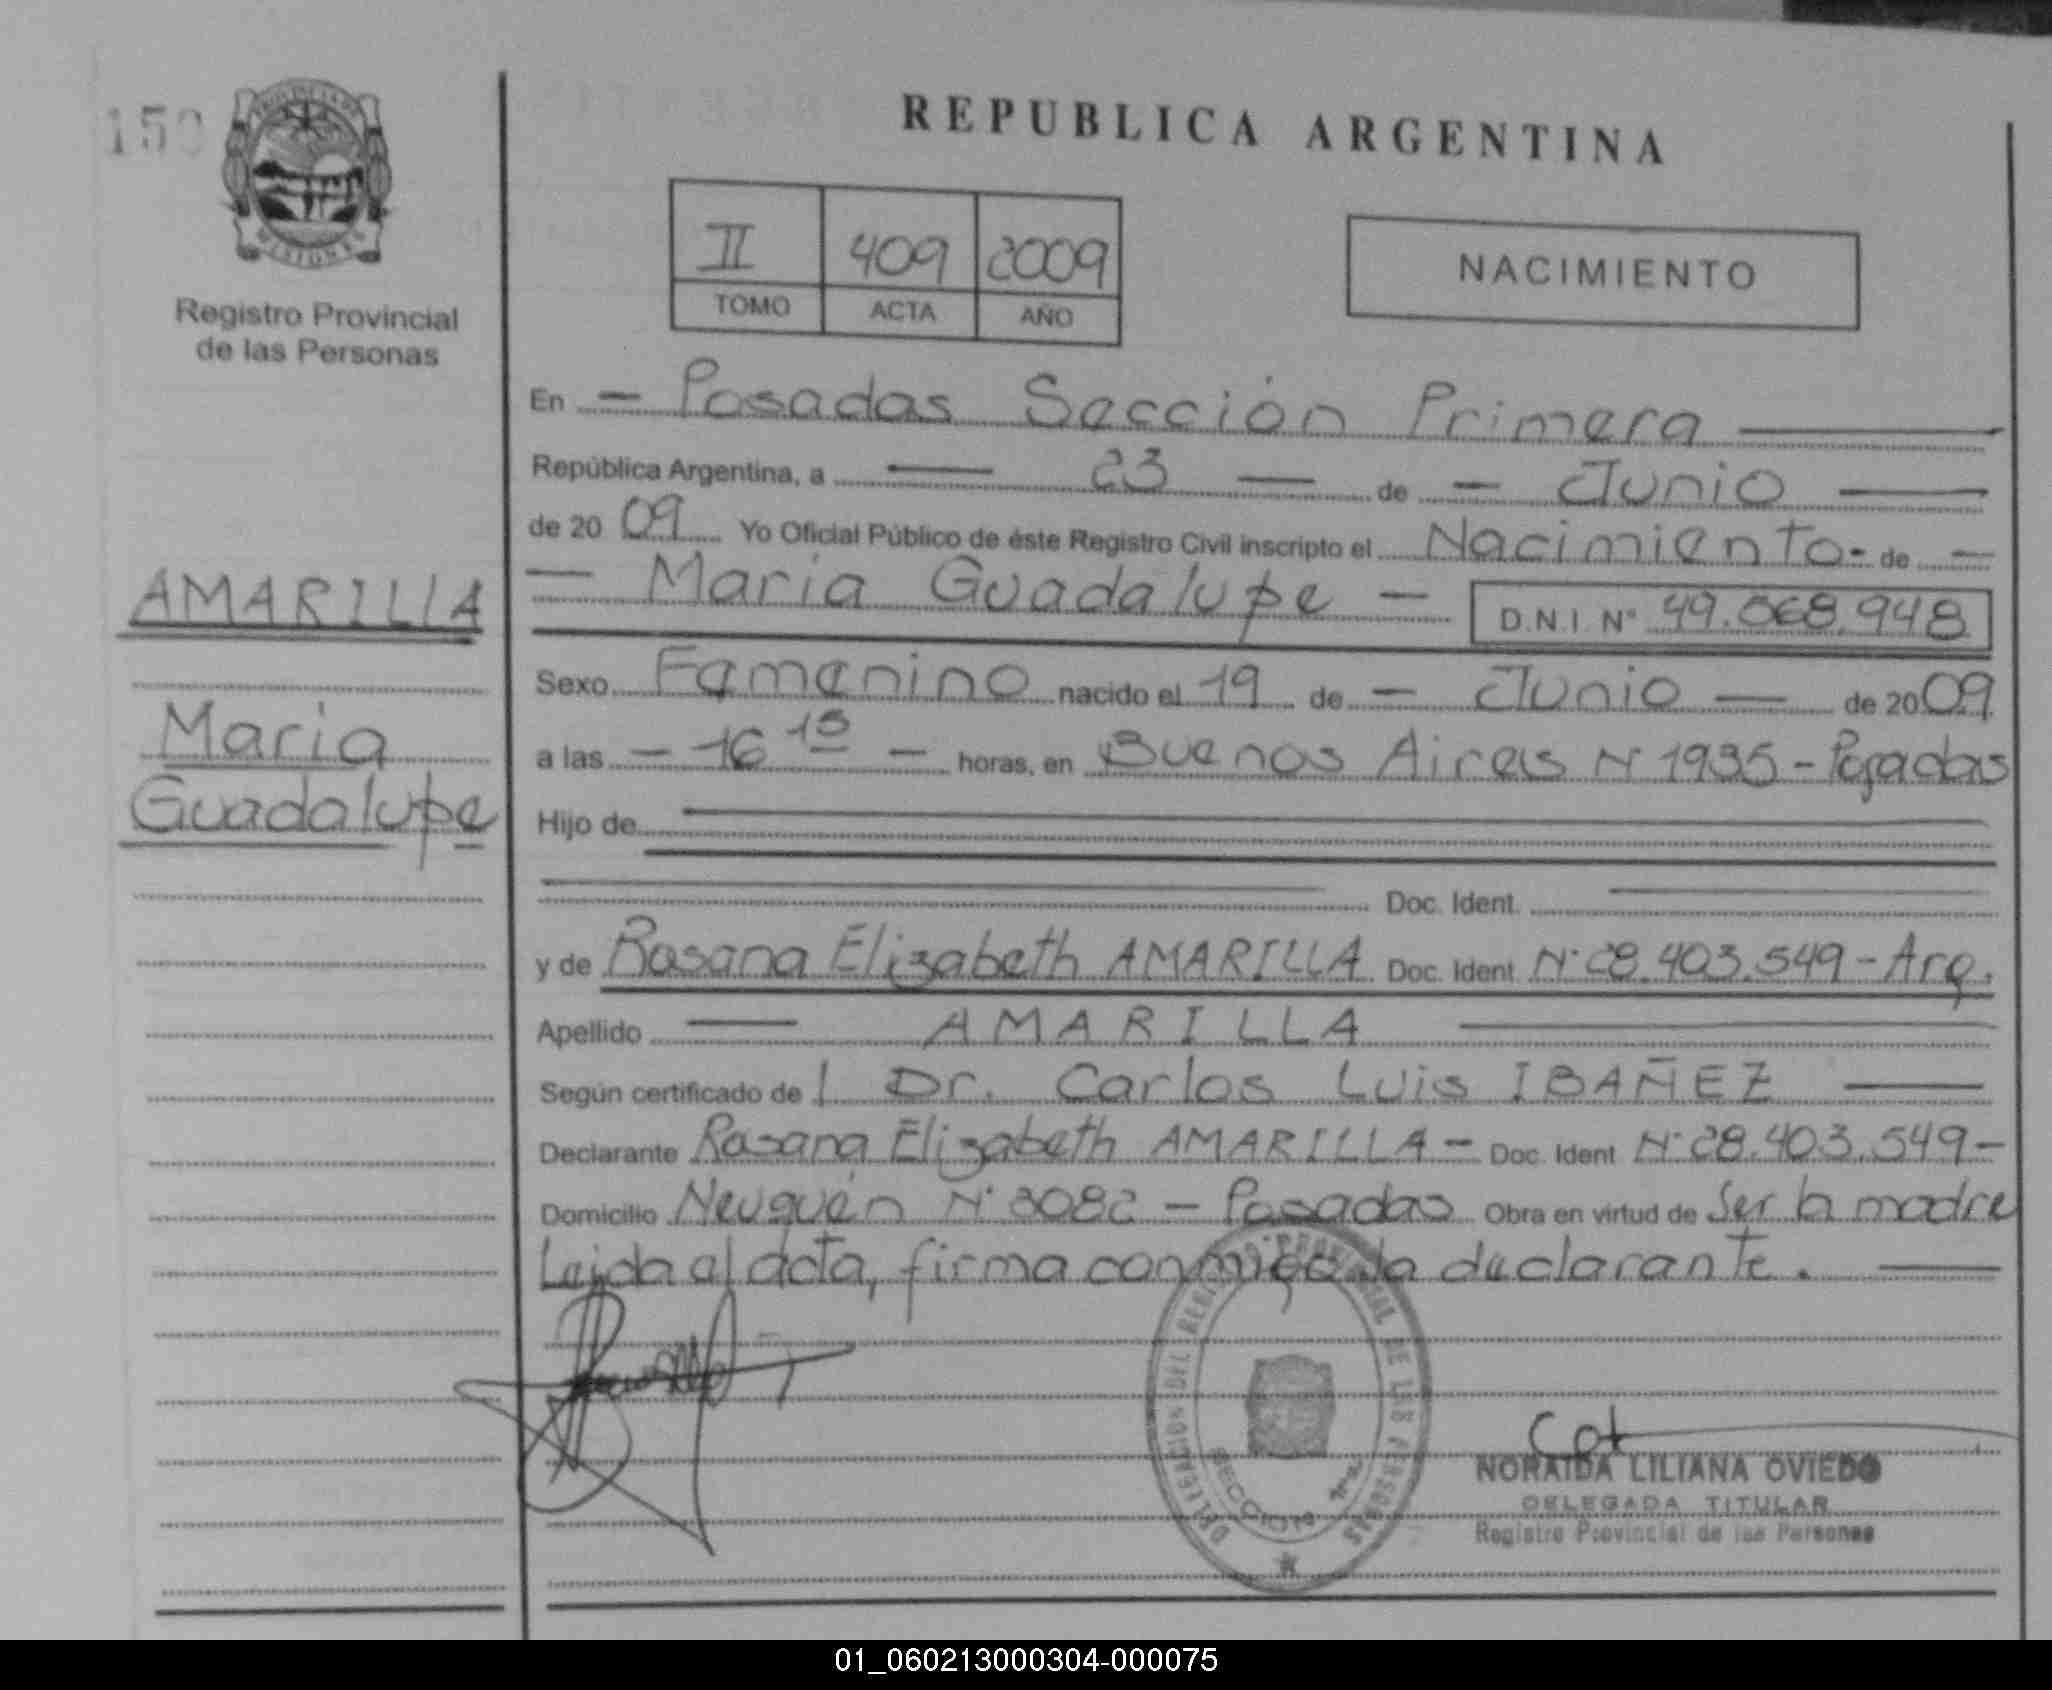 150
PROVINCIA DE
MISIONES
Registro Provincial
de las Personas
AMARILLA
Maria
Guadalupe
REPUBLICA ARGENTINA
II 409 2009
TOMO ACTA AÑO
NACIMIENTO
En - Posadas Sección Primera
República Argentina, a — 23 — de - Junio —
de 2009 Yo Oficial Público de éste Registro Civil inscripto el Nacimiento- de —
— Maria Guadalupe — D.N.I. N° 49.068.948
Sexo Femenino nacido el 19 de - Junio — de 2009
a las - 16 15 - horas, en Buenos Aires N° 1935 - Posadas
Hijo de
Doc. Ident.
y de Rosana Elizabeth AMARILLA Doc. Ident N° 28.403.549 - Arg.
Apellido — AMARILLA
Según certificado de Dr. Carlos Luis IBAÑEZ
Declarante Rosana Elizabeth AMARILLA - Doc. Ident N° 28.403.549-
Domicilio Neuquén N° 3082 - Posadas Obra en virtud de Ser la madre
Leida el acta, firma conmigo la declarante.
DELEGACION DEL REGISTRO PROVINCIAL DE LAS PERSONAS
SECCION 1ra.
NORAIDA LILIANA OVIEDO
DELEGADA TITULAR
Registro Provincial de las Personas
01_060213000304-000075